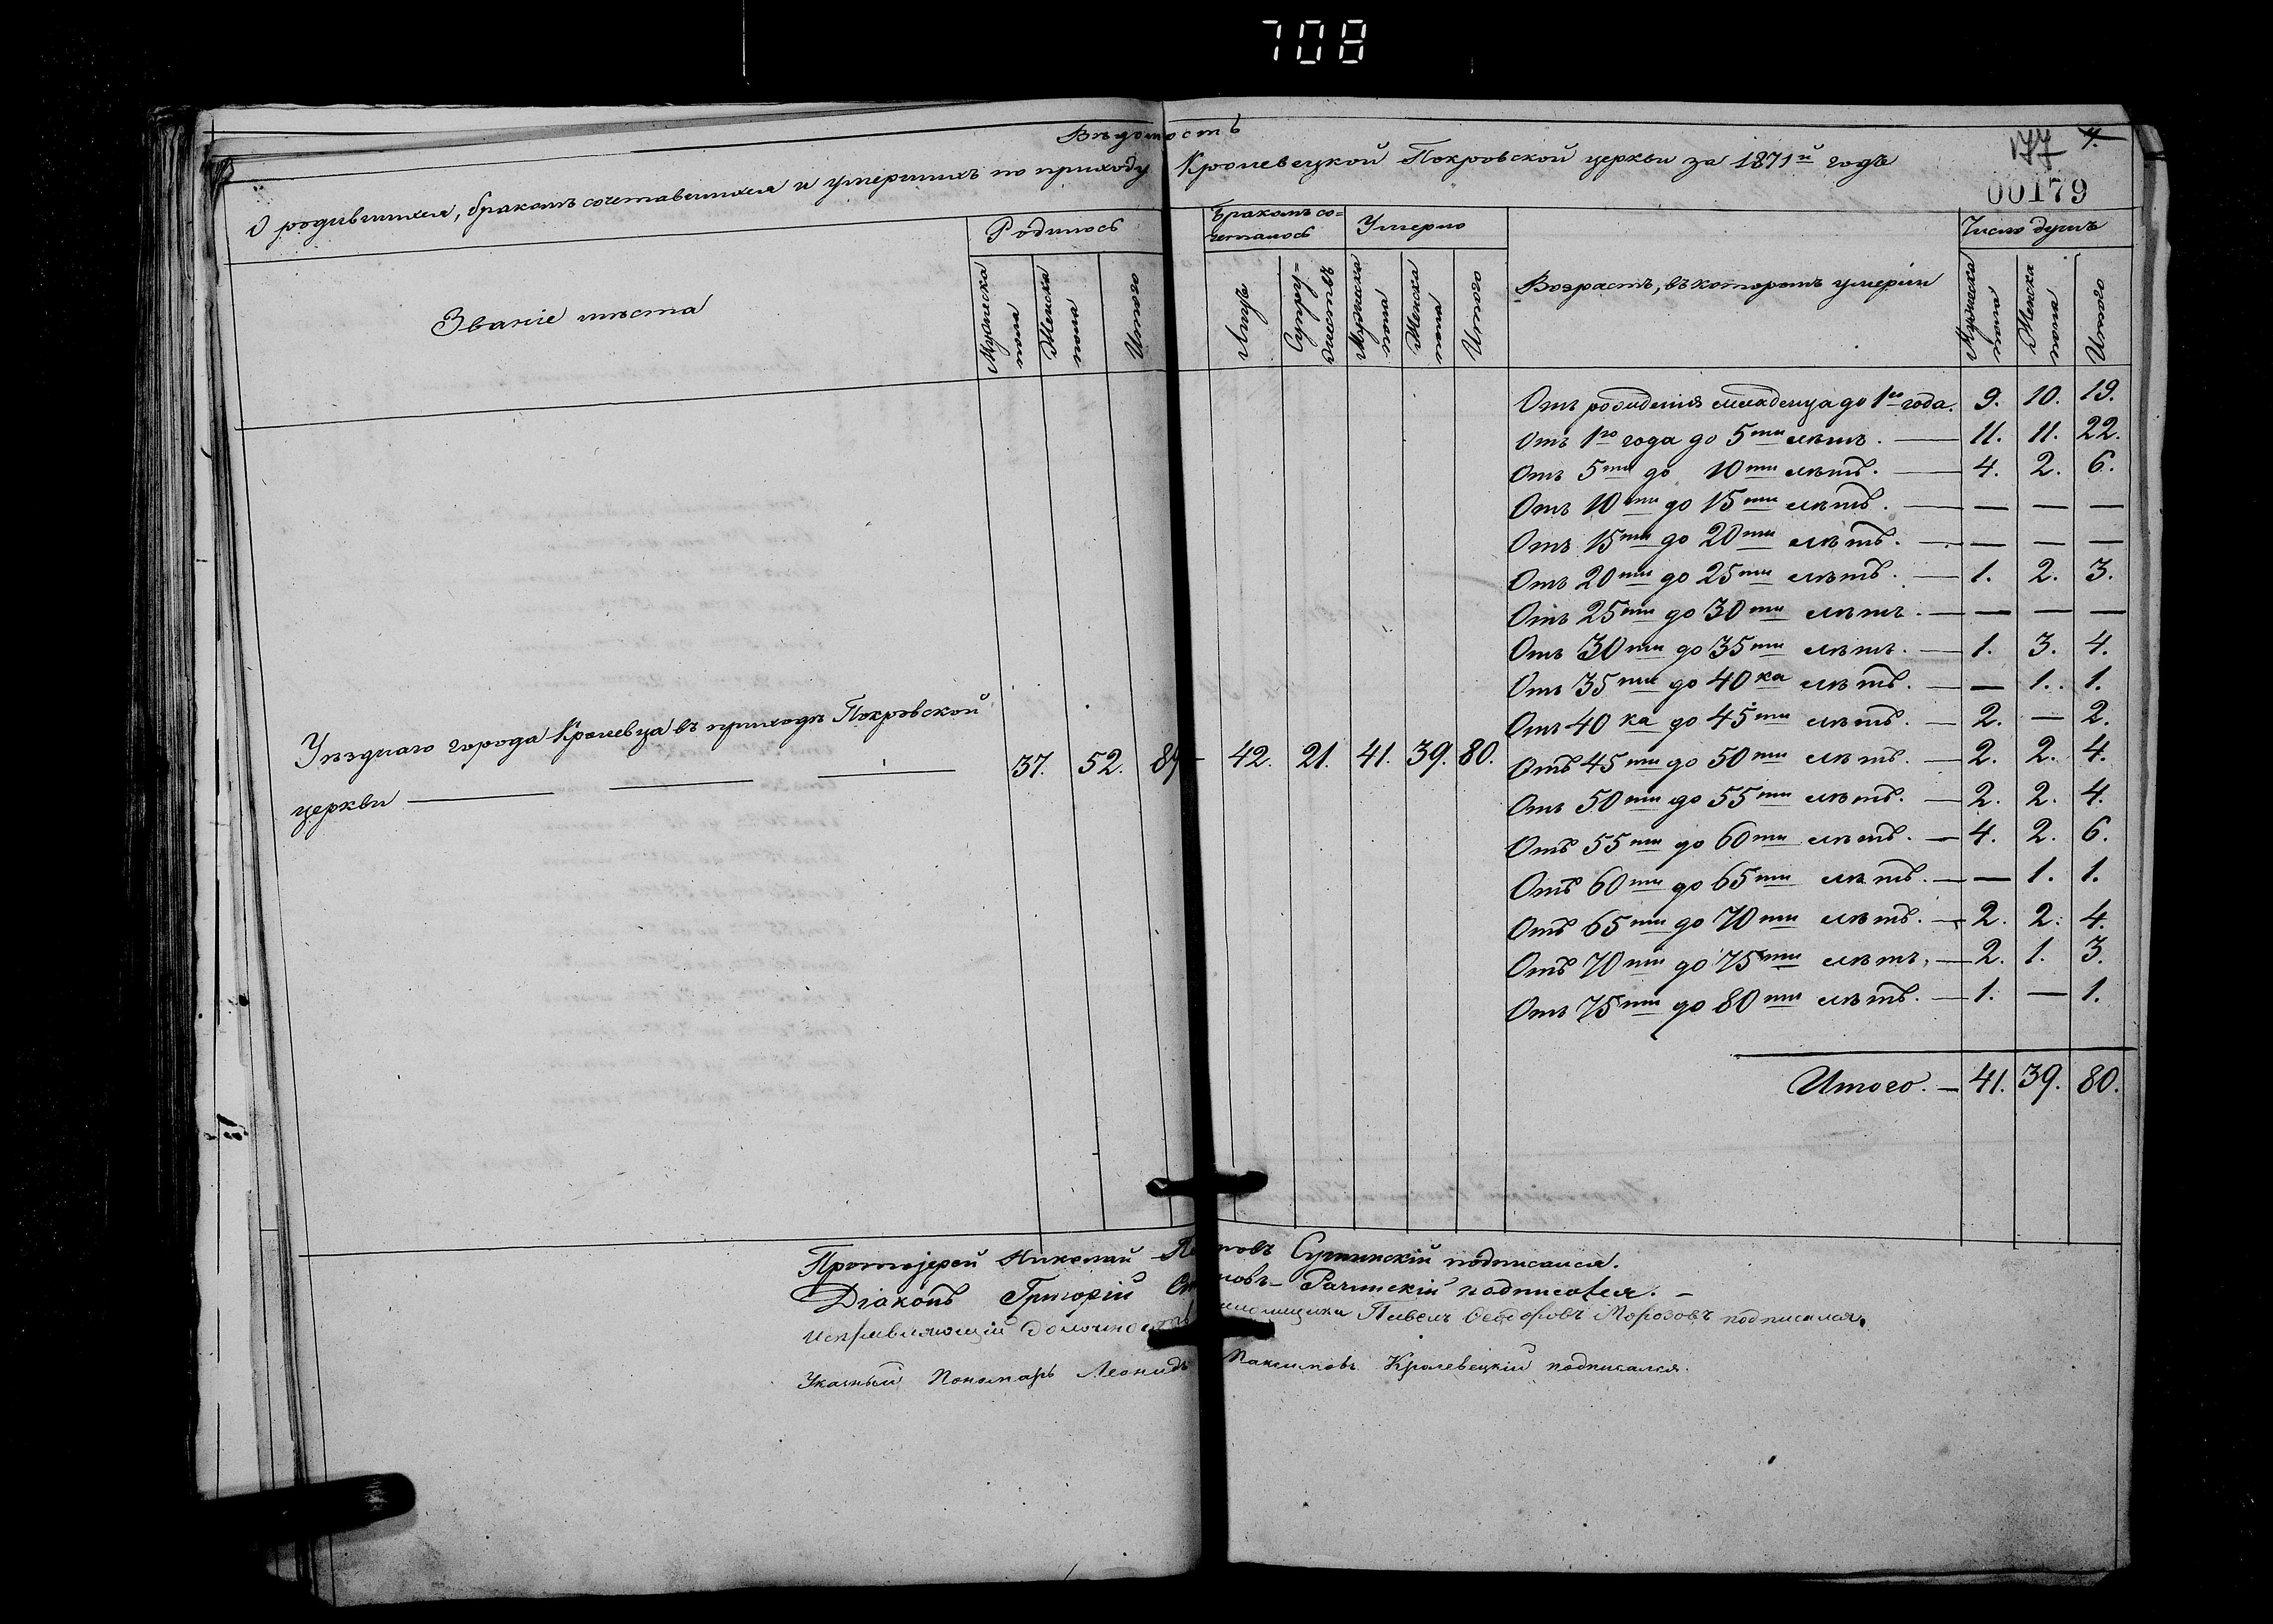 708
177 4.
00179
Вѣдомость
О родившихся, бракомъ сочетавшихся и умершихъ по приходу Кролевецкой Покровской церкви за 1871й годъ
Званіе мѣста
Родилось
Мужеска пола
Женска пола
Итого
Бракомъ со=
четалось
Лицъ
Супру=
жествъ
Умерло
Мужеска пола
Женска пола
Итого
Возрастъ, въ которомъ умерли
Число душъ
Мужеска пола
Женска пола
Итого
Отъ рожденія младенца до 1го года. 9. 10. 19.
Отъ 1го года до 5ти лѣтъ. — 11. 11. 22.
Отъ 5ти до 10ти лѣтъ. — 4. 2. 6.
Отъ 10ти до 15ти лѣтъ. — — — —
Отъ 15ти до 20ти лѣтъ. — — — —
Отъ 20ти до 25ти лѣтъ. — 1. 2. 3.
Отъ 25ти до 30ти лѣтъ. — — — —
Отъ 30ти до 35ти лѣтъ. — 1. 3. 4.
Отъ 35ти до 40ка лѣтъ. — — 1. 1.
Отъ 40ка до 45ти лѣтъ. — 2. — 2.
Уѣзднаго города Кролевца въ приходѣ Покровской
церкви — — — 37. 52. 89 42. 21. 41. 39. 80.
Отъ 45ти до 50ти лѣтъ. — 2. 2. 4.
Отъ 50ти до 55ти лѣтъ. — 2. 2. 4.
Отъ 55ти до 60ти лѣтъ. — 4. 2. 6.
Отъ 60ти до 65ти лѣтъ. — — 1. 1.
Отъ 65ти до 70ти лѣтъ. — 2. 2. 4.
Отъ 70ти до 75ти лѣтъ. — 2. 1. 3.
Отъ 75ти до 80ти лѣтъ. — 1. — 1.
Итого. — 41. 39. 80.
Протоіерей Николай подписался.
Діаконъ Григорій Рачинскій подписался. —
Исправляющій должность Павелъ Ѳеодоровъ Морозовъ подписался.
Указный Пономарь Леонидъ Максимовъ Кролевецкій подписался.